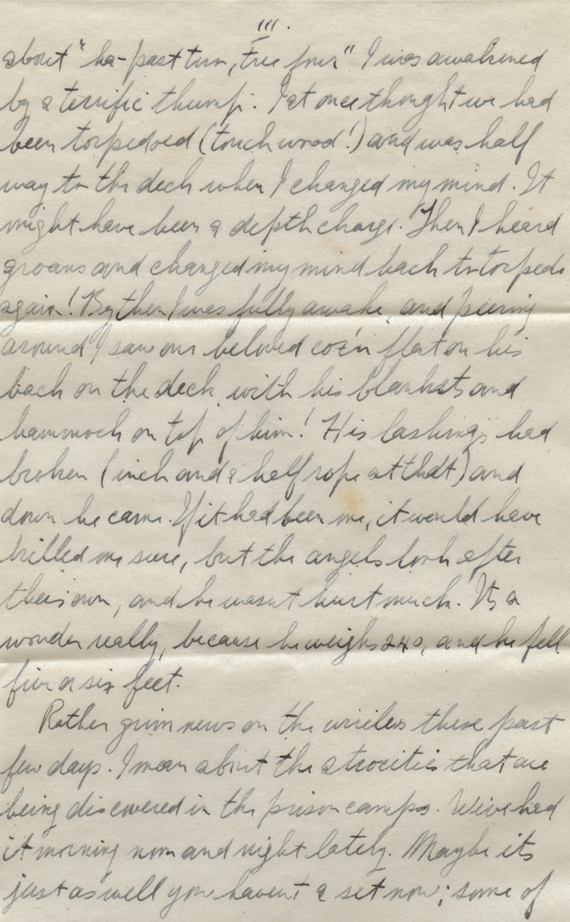 III.
about "ha-past two, tree four" I was awakened
by a terrific thump. I at once thought we had
been torpedoed (touch wood!) and was half
way to the deck when I changed my mind. It
might have been a depth charge. Then I heard
groans and changed my mind back to torpedo
again! By then I was fully awake, and peering
around I saw our beloved coz'n flat on his
back on the deck, with his blankets and
hammock on top of him! His lashings had
broken (inch and a half rope at that) and
down he came. If it had been me, it would have
killed me sure, but the angels look after
their own, and he wasn't hurt much. Its a
wonder really, because he weighs 240, and he fell
five or six feet.
Rather grim news on the wireless these past
few days. I mean about the atrocities that are
being discovered in the prison camps. We've had
it morning noon and night lately. Maybe its
just as well you haven't a set now; some of